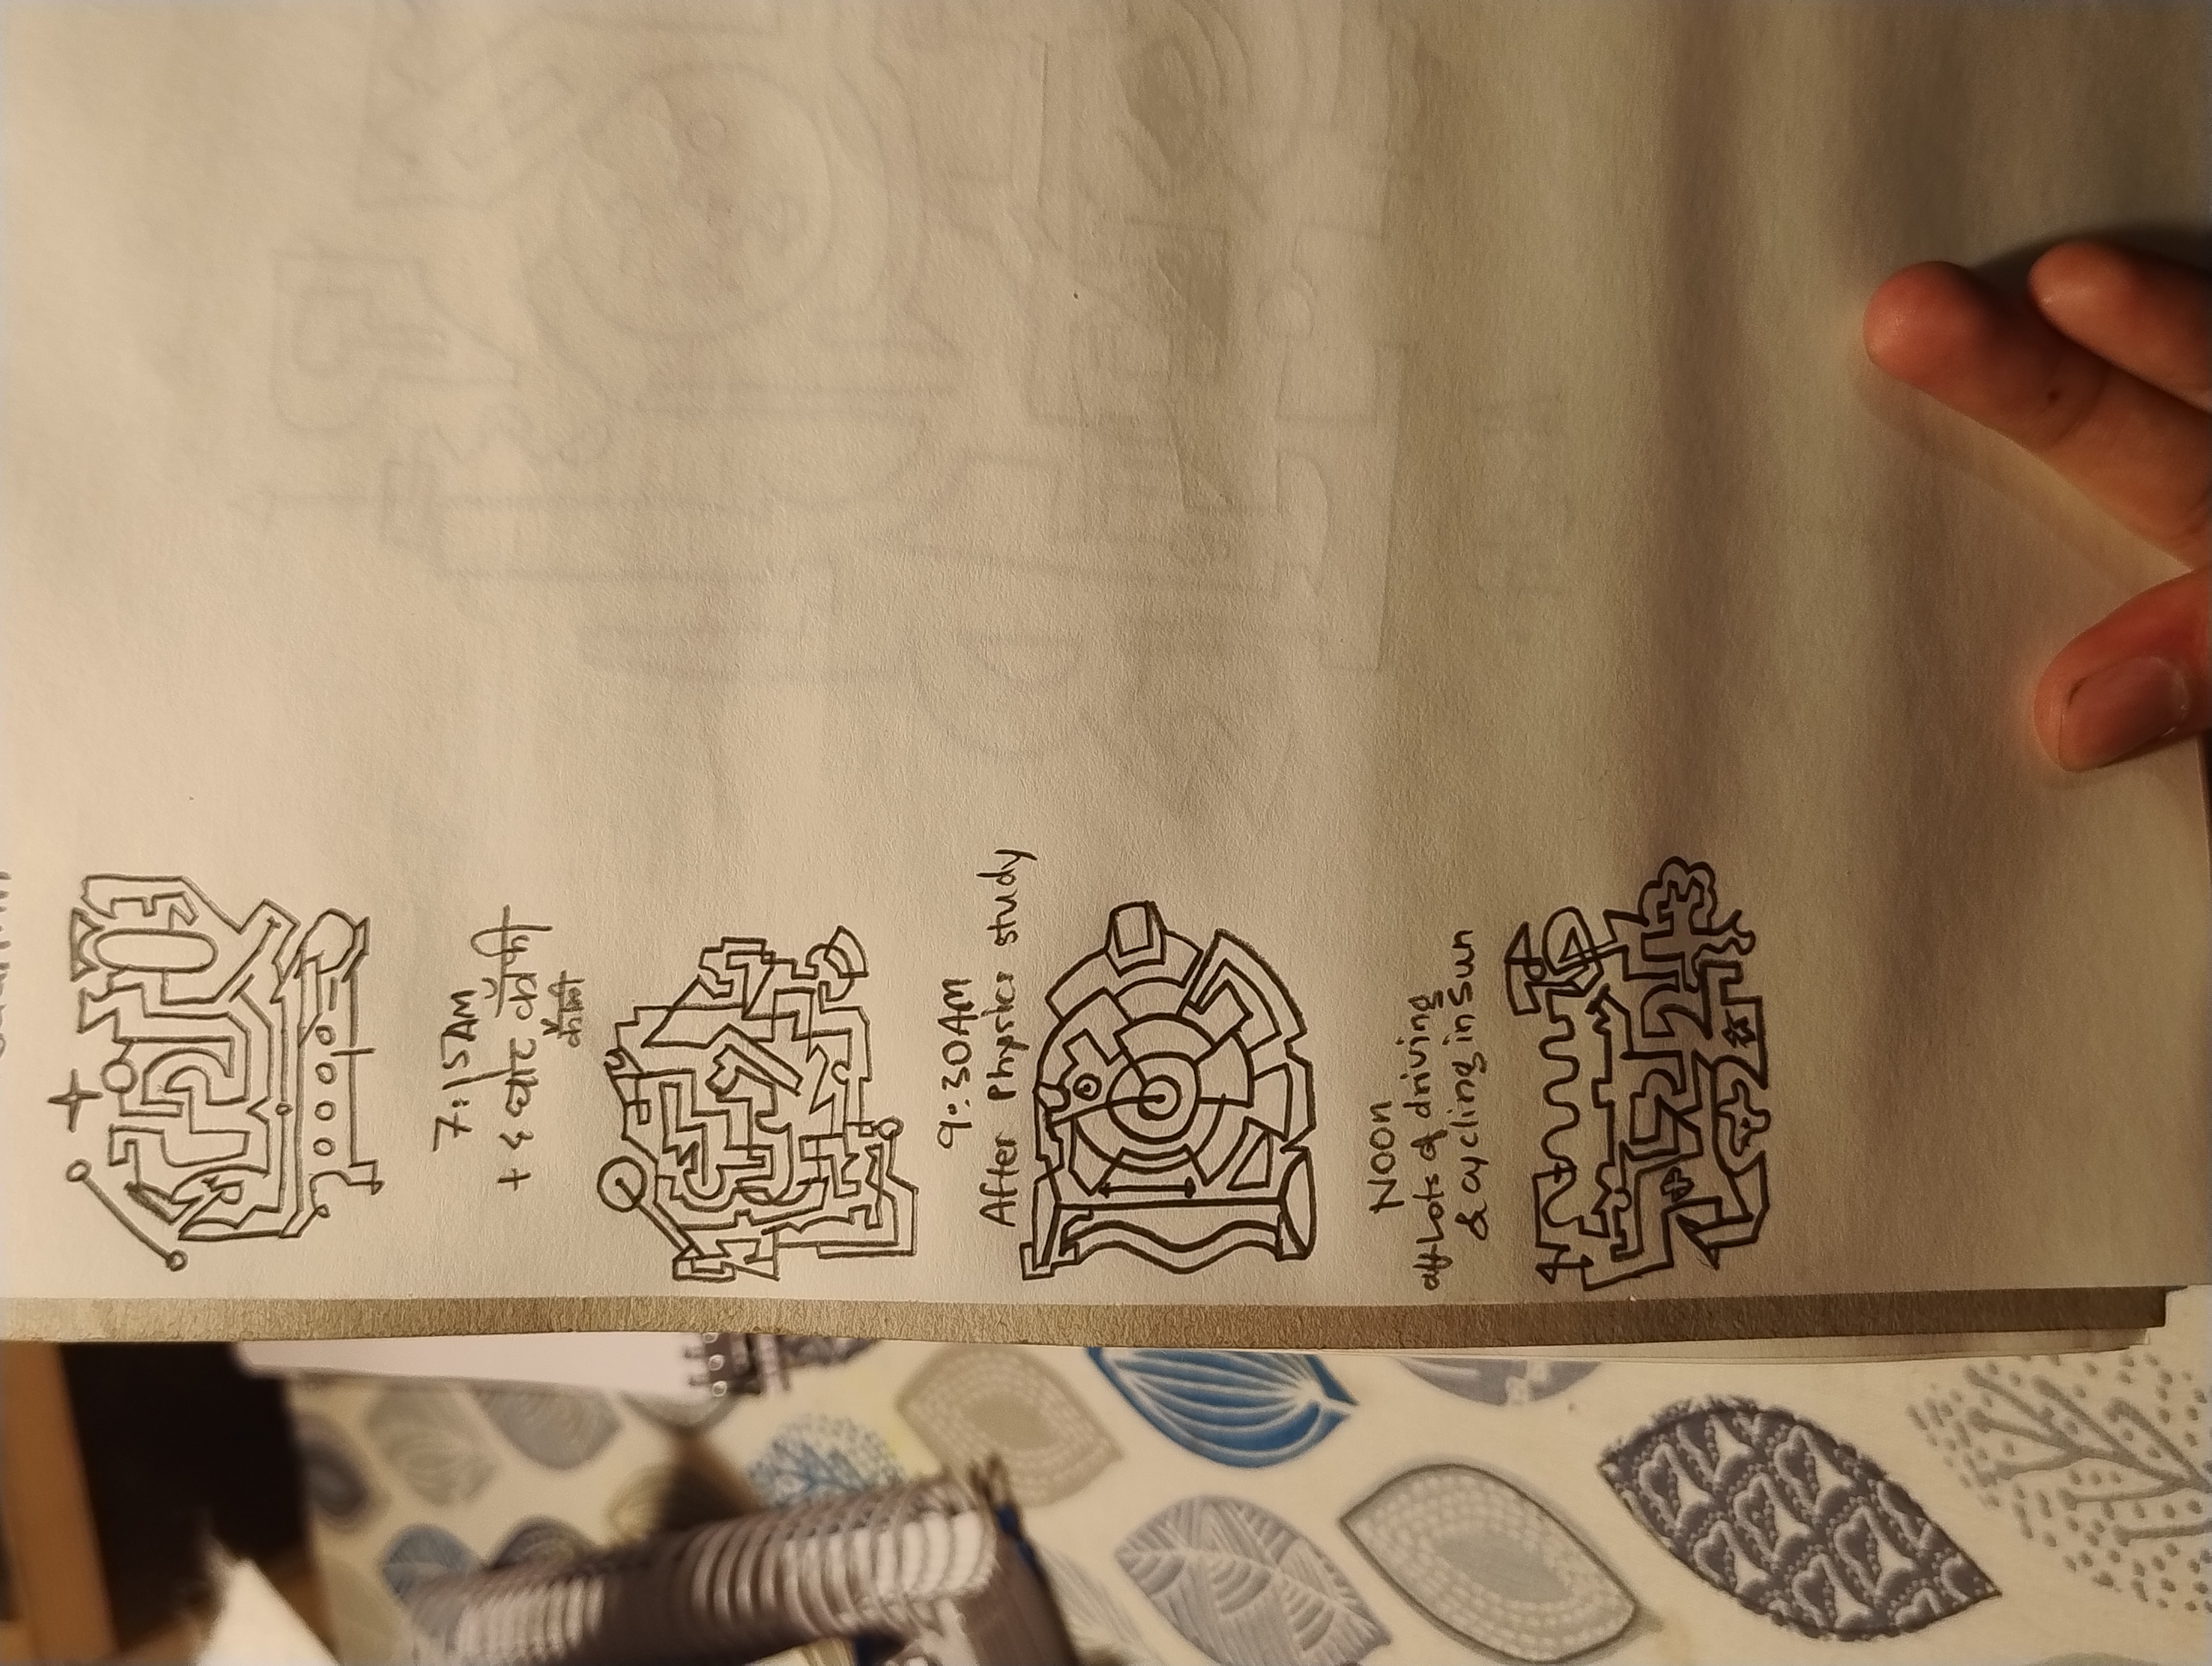 7:15AM
+ ६ घोट कॉफी
कॉफी
9:30AM
After Physics study
Noon
aft Lots of driving
& cycling in Sun